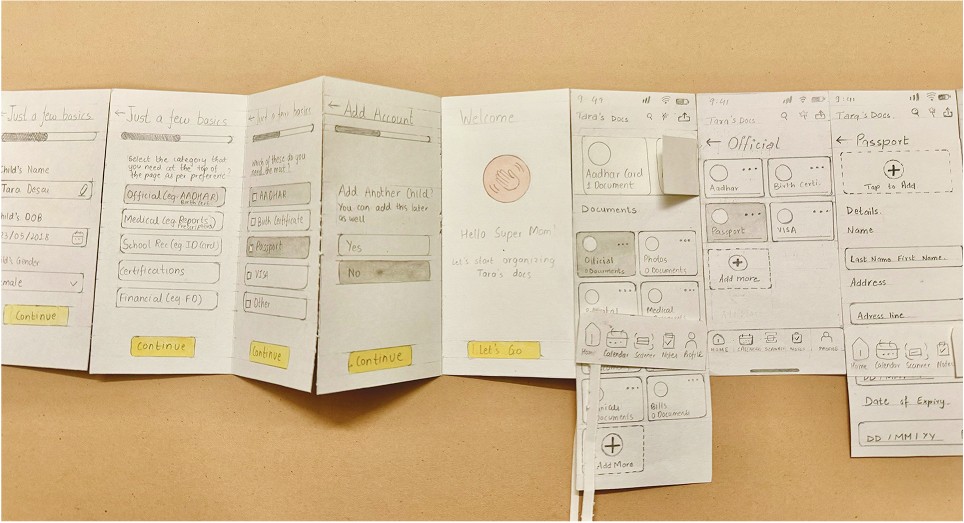 ← Just a few basics
Child's Name
Tara Desai
Child's DOB
23/03/2018
Child's Gender
male
Continue
← Just a few basics
Select the category that
you need at the top of
the page as per preference
Official (eg AADHAR)
Medical (eg Reports,
Prescriptions)
School Rec (eg ID Card)
Certifications
Financial (eg FD)
Continue
← Just a few basics
Which of these do you
need the most?
AADHAR
Birth Certificate
Passport
VISA
Other
Continue
← Add Account
Add Another Child?
You can add this later
as well
Yes
No
Continue
Welcome
Hello Super Mom
Let's start organizing
Tara's docs
Let's Go
9:41
Tara's Docs
Aadhar Card
1 Document
Documents
Official
0 Documents
Photos
0 Documents
Medical
Home
Calendar
Scanner
Notes
Profile
Bills
0 Documents
Documents
Add More
9:41
Tara's Docs
← Official
Aadhar
Birth Certi.
Passport
VISA
Add more
HOME
SCANNER
NOTES
PROFILE
9:41
Tara's Docs.
← Passport
Tap to Add
Details.
Name
Last Name First Name.
Address
Adress line
Home
Calendar
Scanner
Notes
DD/MM/YY
Date of Expiry
DD/MM/YY